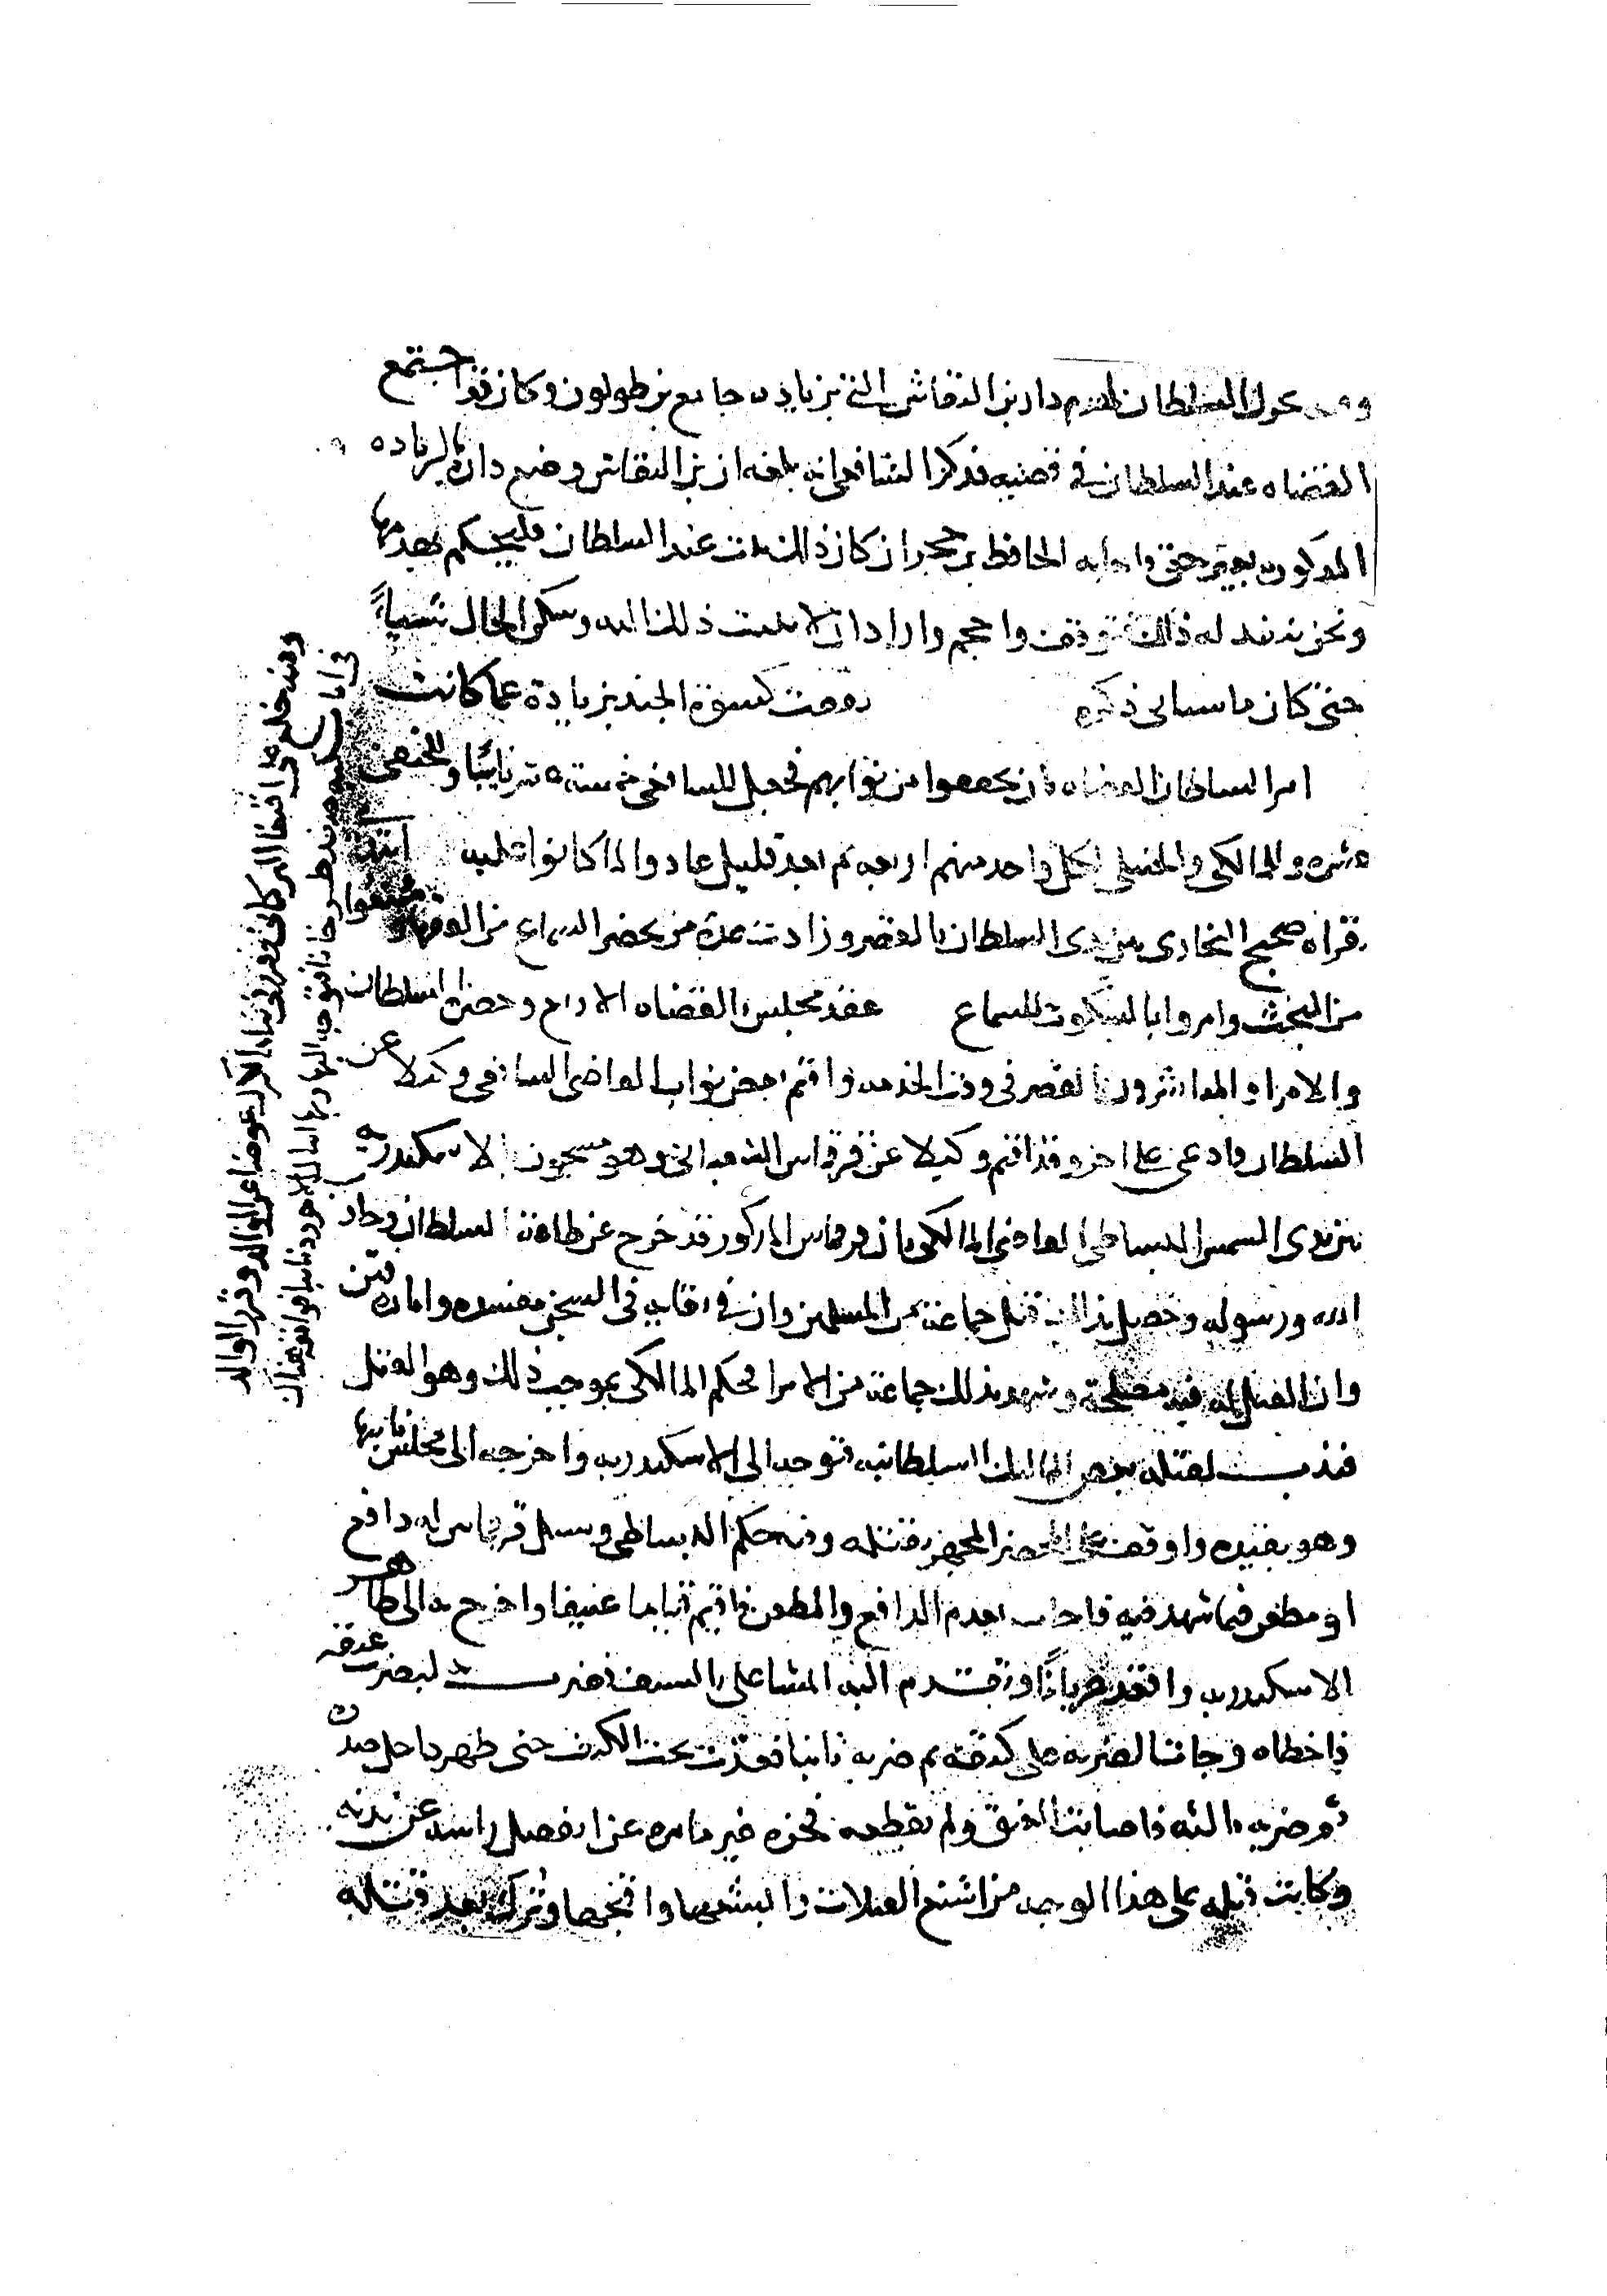 وفيه تحرك السلطان لهدم دار بن النقاش التي بزيادة جامع بن طولون وكان قد اجتمع
القضاه عند السلطان في قضيه فذكر الشافعي انه بلغه ان بن النقاش وضع داره بالزياده
المذكوره بغير حق واجابه الحافظ بن حجر ان كان ذلك ثبت عند السلطان فليحكم بهدمها
ونحن ننفذ له ذلك فتوقف واحجم واراد ان لا يثبت ذلك اليه وسكن الحال شيأً
حتى كان ما سياتي ذكره رفعت كسوة الجند بزيادة عما كانت
امر السلطان القضاه بان يخففوا من نوابهم فجعل للشافعي خمسة عشر نايبا وللحنفي
عشره وللمالكي والحنبلي لكل واحد منهم اربعه ثم بعد قليل عادوا لما كانوا عليه ابتدئ
بقراه صحيح البخاري بين يدي السلطان بالقصر وزادت عدة من يحضر السماع من الفقهاء ومنعوا
من البحث وامروا بالسكوت للسماع عقد مجلس القضاه الاربع وحضره السلطان
والامرا والمباشرون بالقصر في وقت الخدمه واقيم بعض نواب القاضي الشافعي وكيلا عن
السلطان فادعى على اخر وقد اقيم وكيلا عن قرقماس الشعباني وهو مسجون بالاسكندريه
بين يدي الشمس البساطي القاضي المالكي بان قرقماس المذكور قد خرج عن طاعة السلطان وحارب
الله ورسوله وحصل بذلك قتل جماعة من المسلمين وان في بقايه في السجن مفسده واثاره فتن
وان القتل له فيه مصلحة وشهد بذلك جماعة من الامرا فحكم المالكي بموجب ذلك وهو القتل
فندب لقتله بعض المماليك السلطانيه فتوجه الى الاسكندريه واخرجه الى مجلس نايبها
وهو بقيده واوقف على المحضر المجهز بقتله وفيه حكم البساطي وسئل قرقماس له دافع
او مطعن فيما شهد فيه فاجاب بعدم الدافع والمطعن فاقيم قياما عنيفا واخرج به الى ظاهر
الاسكندريه واقعد عريانًا وتقدم اليه المشاعلي بالسيف فضرب ليضرب عنقه
فاخطاه وجات الضربه على كتفه ثم ضربه ثانيا فوقعت تحت الكتف حتى ظهر داخل صدره
ثم ضربه ثالثه فاصابت العنق ولم تقطعه فحزه غير ما مره عن ان فصل راسه عن بدنه
وكانت قتله على هذا الوجه من اشنع القتلات وابشعها واقبحها وترك بعد قتله
وفيه خلع على اقبغا التركماني وقرر في نيابة الكرك عوضا عن الوالد وقرر الوالد
في اتابكية صفد بطرخانا فتوجه اليها وبها اينال الاجرود نايبا فوافقه هناك